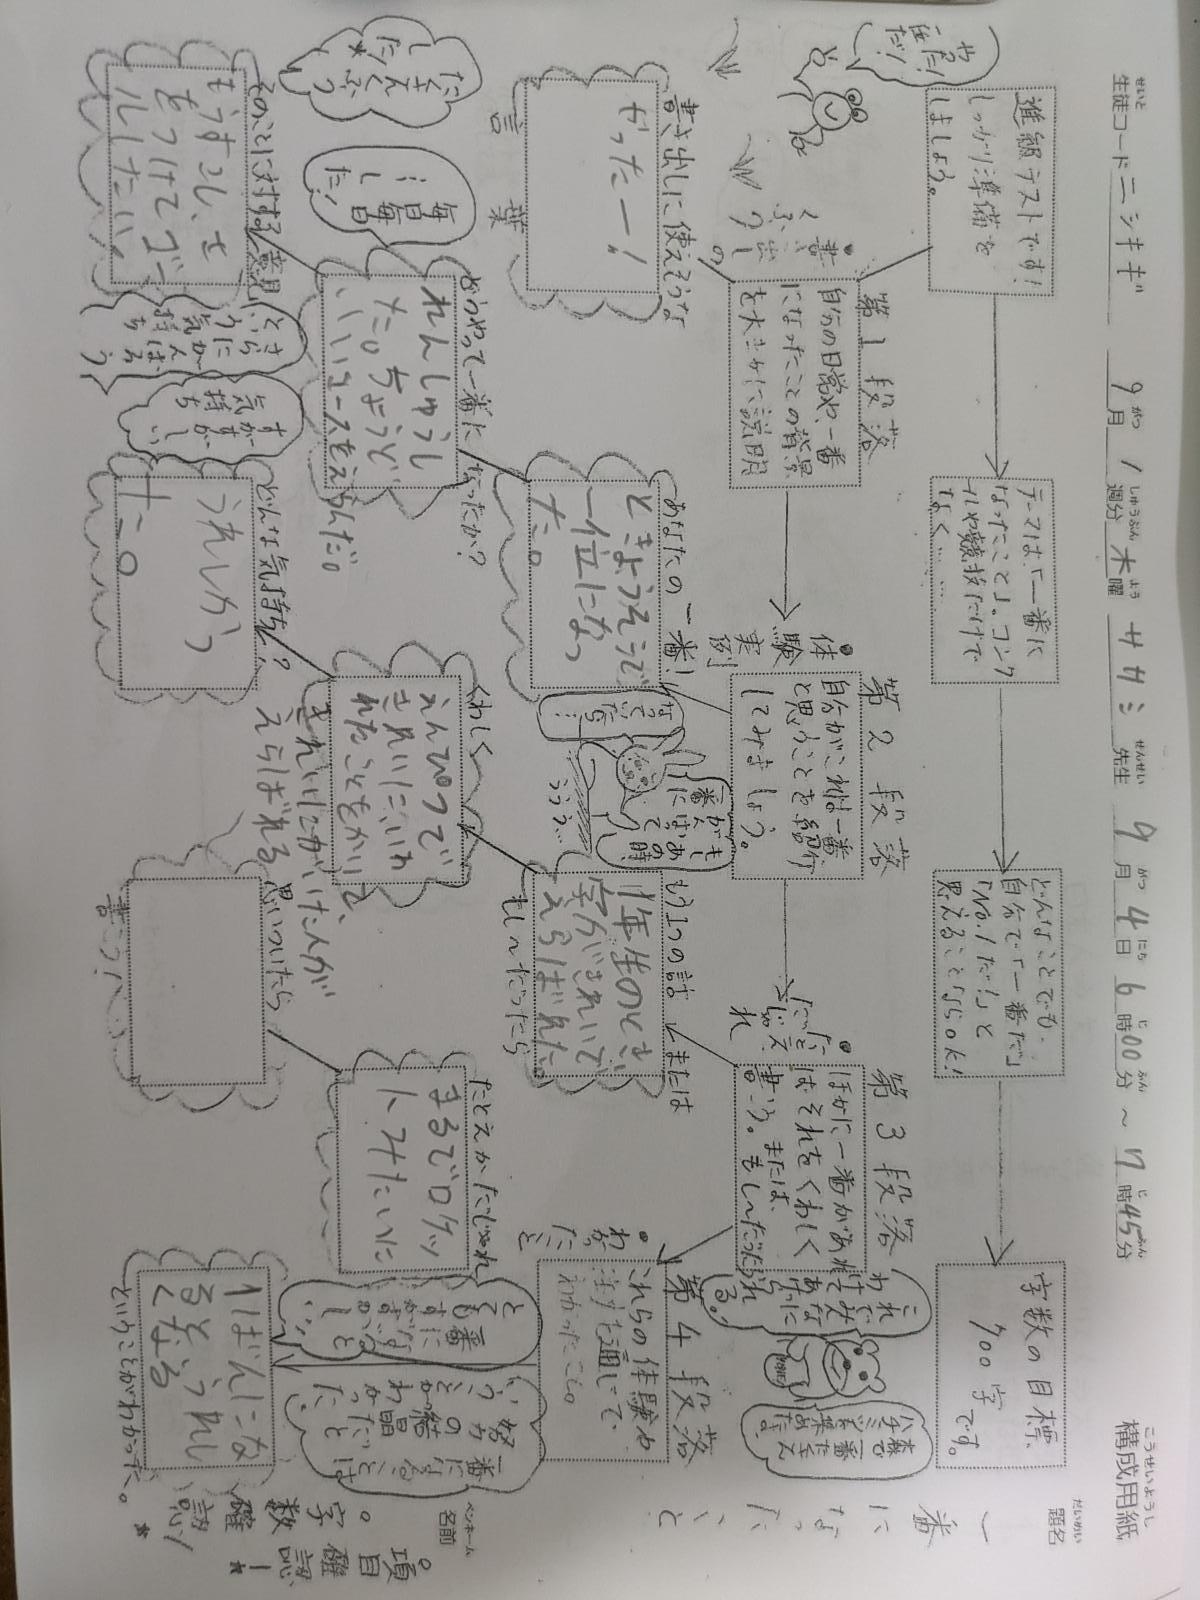 構成用紙
題名 一番になったこと
ペンネーム
名前
生徒コード ニシキギ 9月1週分 木曜 サカミ 先生 9月4日 6時00分 ~ 7時45分
進級テストです!
しっかり準備を
しましょう。
テーマは「一番に
なったこと」。コンク
ールや競技だけで
なく……
どんなことでも
自分で「一番だ」
「No.1だ!」と
思えることならok!
字数の目標、
700字です。
第1段落
自分の日常や、一番
になったことの背景
を大まかに説明
・書き出しの
くふう
書き出しに使えそうな
言葉
かったー!
第2段落
自分がこれは一番
と思うことを紹介
してみましょう。
・体験実例
あなたの一番!
ときょうそうで
一位になっ
た。
どうやって一番になったか?
れんしゅうし
た。ちょうど
いいコースもえらんだ。
毎日毎日
…し
た!
たくさん
くふう
した*
そのことに対する意見
もうすこし、き
をつけてゴー
ルしたい!
さらに
気持ち
第3段落
ほかに一番があれ
ばそれをくわしく
書こう。または、
もし~だったら
・たとえ
だじゃれ
もう1つの話 または
もし~だったら
1年生のとき
字がきれいで
えらばれた。
くわしく
えんぴつで
きれいにいわ
れたことをかいて、
きれいにかいた人が
えらばれる
どんな気持ち?
うれしかっ
た。
すがすがしい
気持ち
第4段落
これらの体験や
話を通じて、
わかったこと。
・わかったこと
たとえかだじゃれ
まるでロケッ
トみたいに
思いついたら
書こう!
1ばんにな
るとうれし
くなる
ということがわかった。
一番になることは
努力の結晶だと
いうことがわかった。
。字数確認!*
。項目確認!*